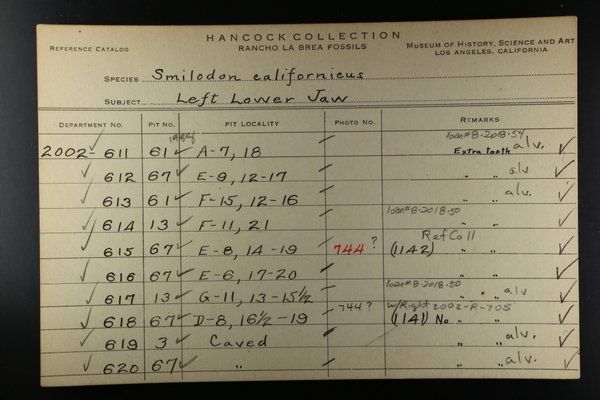 HANCOCK COLLECTION
REFERENCE CATALOG RANCHO LA BREA FOSSILS MUSEUM OF HISTORY, SCIENCE AND ART
LOS ANGELES, CALIFORNIA
SPECIES Smilodon californicus
SUBJECT Left Lower Jaw
DEPARTMENT NO. PIT NO. PIT LOCALITY PHOTO NO. REMARKS
loan#8-2018-54
2002- 611 61 A-7, 18 Extra tooth alv. ✓
✓ 612 67 E-9, 12-17 " " alv ✓
✓ 613 61 F-15, 12-16 " " alv. ✓
loan#8-2018-50
✓ 614 13 F-11, 21 " " ✓
Ref Co 11
✓ 615 67 E-8, 14-19 744 ? (1142) " " ✓
✓ 616 67 E-6, 17-20 " " ✓
loan#8-2018-50
✓ 617 13 G-11, 13-15½ " " alv ✓
w/Right 2002-R-705
✓ 618 67 D-8, 16½-19 744? (1141) No " " ✓
✓ 619 3 Caved " " alv. ✓
✓ 620 67 " " " alv. ✓